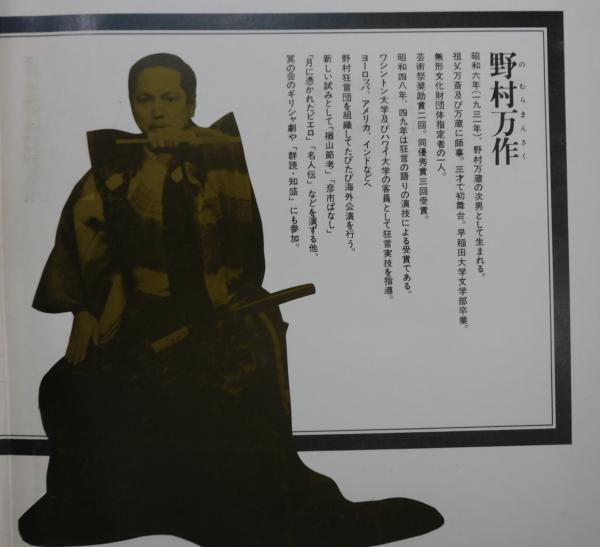 野村万作
のむらまんさく
昭和六年(一九三一年)、野村万蔵の次男として生まれる。
祖父万斎及び万蔵に師事。三才で初舞台。早稲田大学文学部卒業。
無形文化財団体指定者の一人。
芸術祭奨励賞二回。同優秀賞三回受賞。
昭和四八年、四九年は狂言の語りの演技による受賞である。
ワシントン大学及びハワイ大学の客員として狂言実技を指導。
ヨーロッパ、アメリカ、インドなどへ
野村狂言団を組織してたびたび海外公演を行う。
新しい試みとして「楢山節考」「彦市ばなし」
「月に憑かれたピエロ」「名人伝」などを演ずる他、
冥の会のギリシャ劇や「群読・知盛」にも参加。